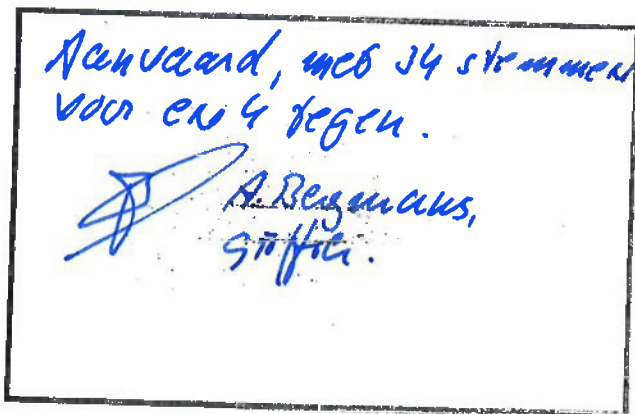 Aanvaard, met 34 stemmen
voor en 4 tegen.
A. Bergmans,
griffier.